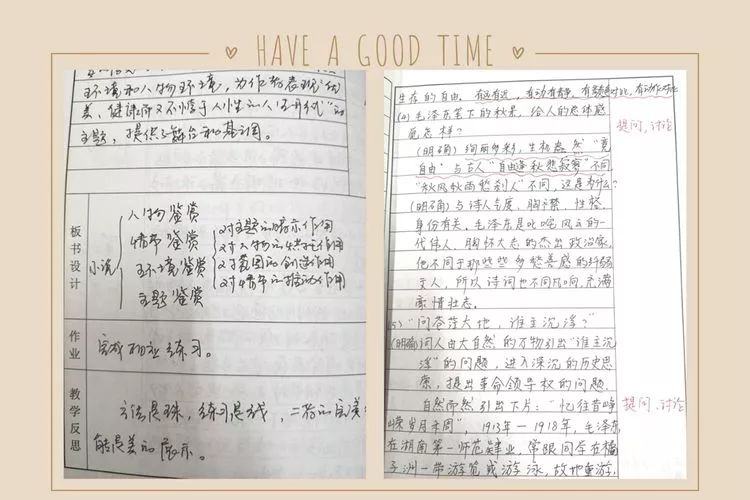 HAVE A GOOD TIME
环境和人物环境，为作者表现“优
美、健康而又不悖于人性的人生形式”的
主题，提供了舞台和基调。
板书设计
小说
人物鉴赏
情节鉴赏
环境鉴赏
主题鉴赏
对主题的暗示作用
对人物的烘托作用
对氛围的创造作用
对情节的推动作用
作业
完成相应练习。
教学反思
方法是珠，练习是线，二者的完美
结合才能是美的展示。
生存的自由。有远有近，有动有静，有色彩对比，有动作对比
(4) 毛泽东笔下的秋景，给人的总体感
觉怎样？
提问，讨论
(明确) 绚丽多彩，生机盎然“竞
自由”与古人“自古逢秋悲寂寥”不同，
“秋风秋雨愁煞人”不同，这是为什么？
(明确) 与诗人态度、胸襟、性格、
身份有关。毛泽东是叱咤风云的一
代伟人，胸怀大志的杰出政治家，
他不同于那些多愁善感的纤弱
文人，所以诗词也不同凡响，充满
豪情壮志。
5) “问苍茫大地，谁主沉浮？”
(明确) 词人由大自然的万物引出“谁主沉
浮”的问题，进入深沉的历史思
索，提出革命领导权的问题。
自然而然引出下片：“忆往昔峥
嵘岁月稠”，1913年—1918年，毛泽东
提问，讨论
在湖南第一师范肄业，常跟同学在橘
子洲一带游览或游泳，故地重游，